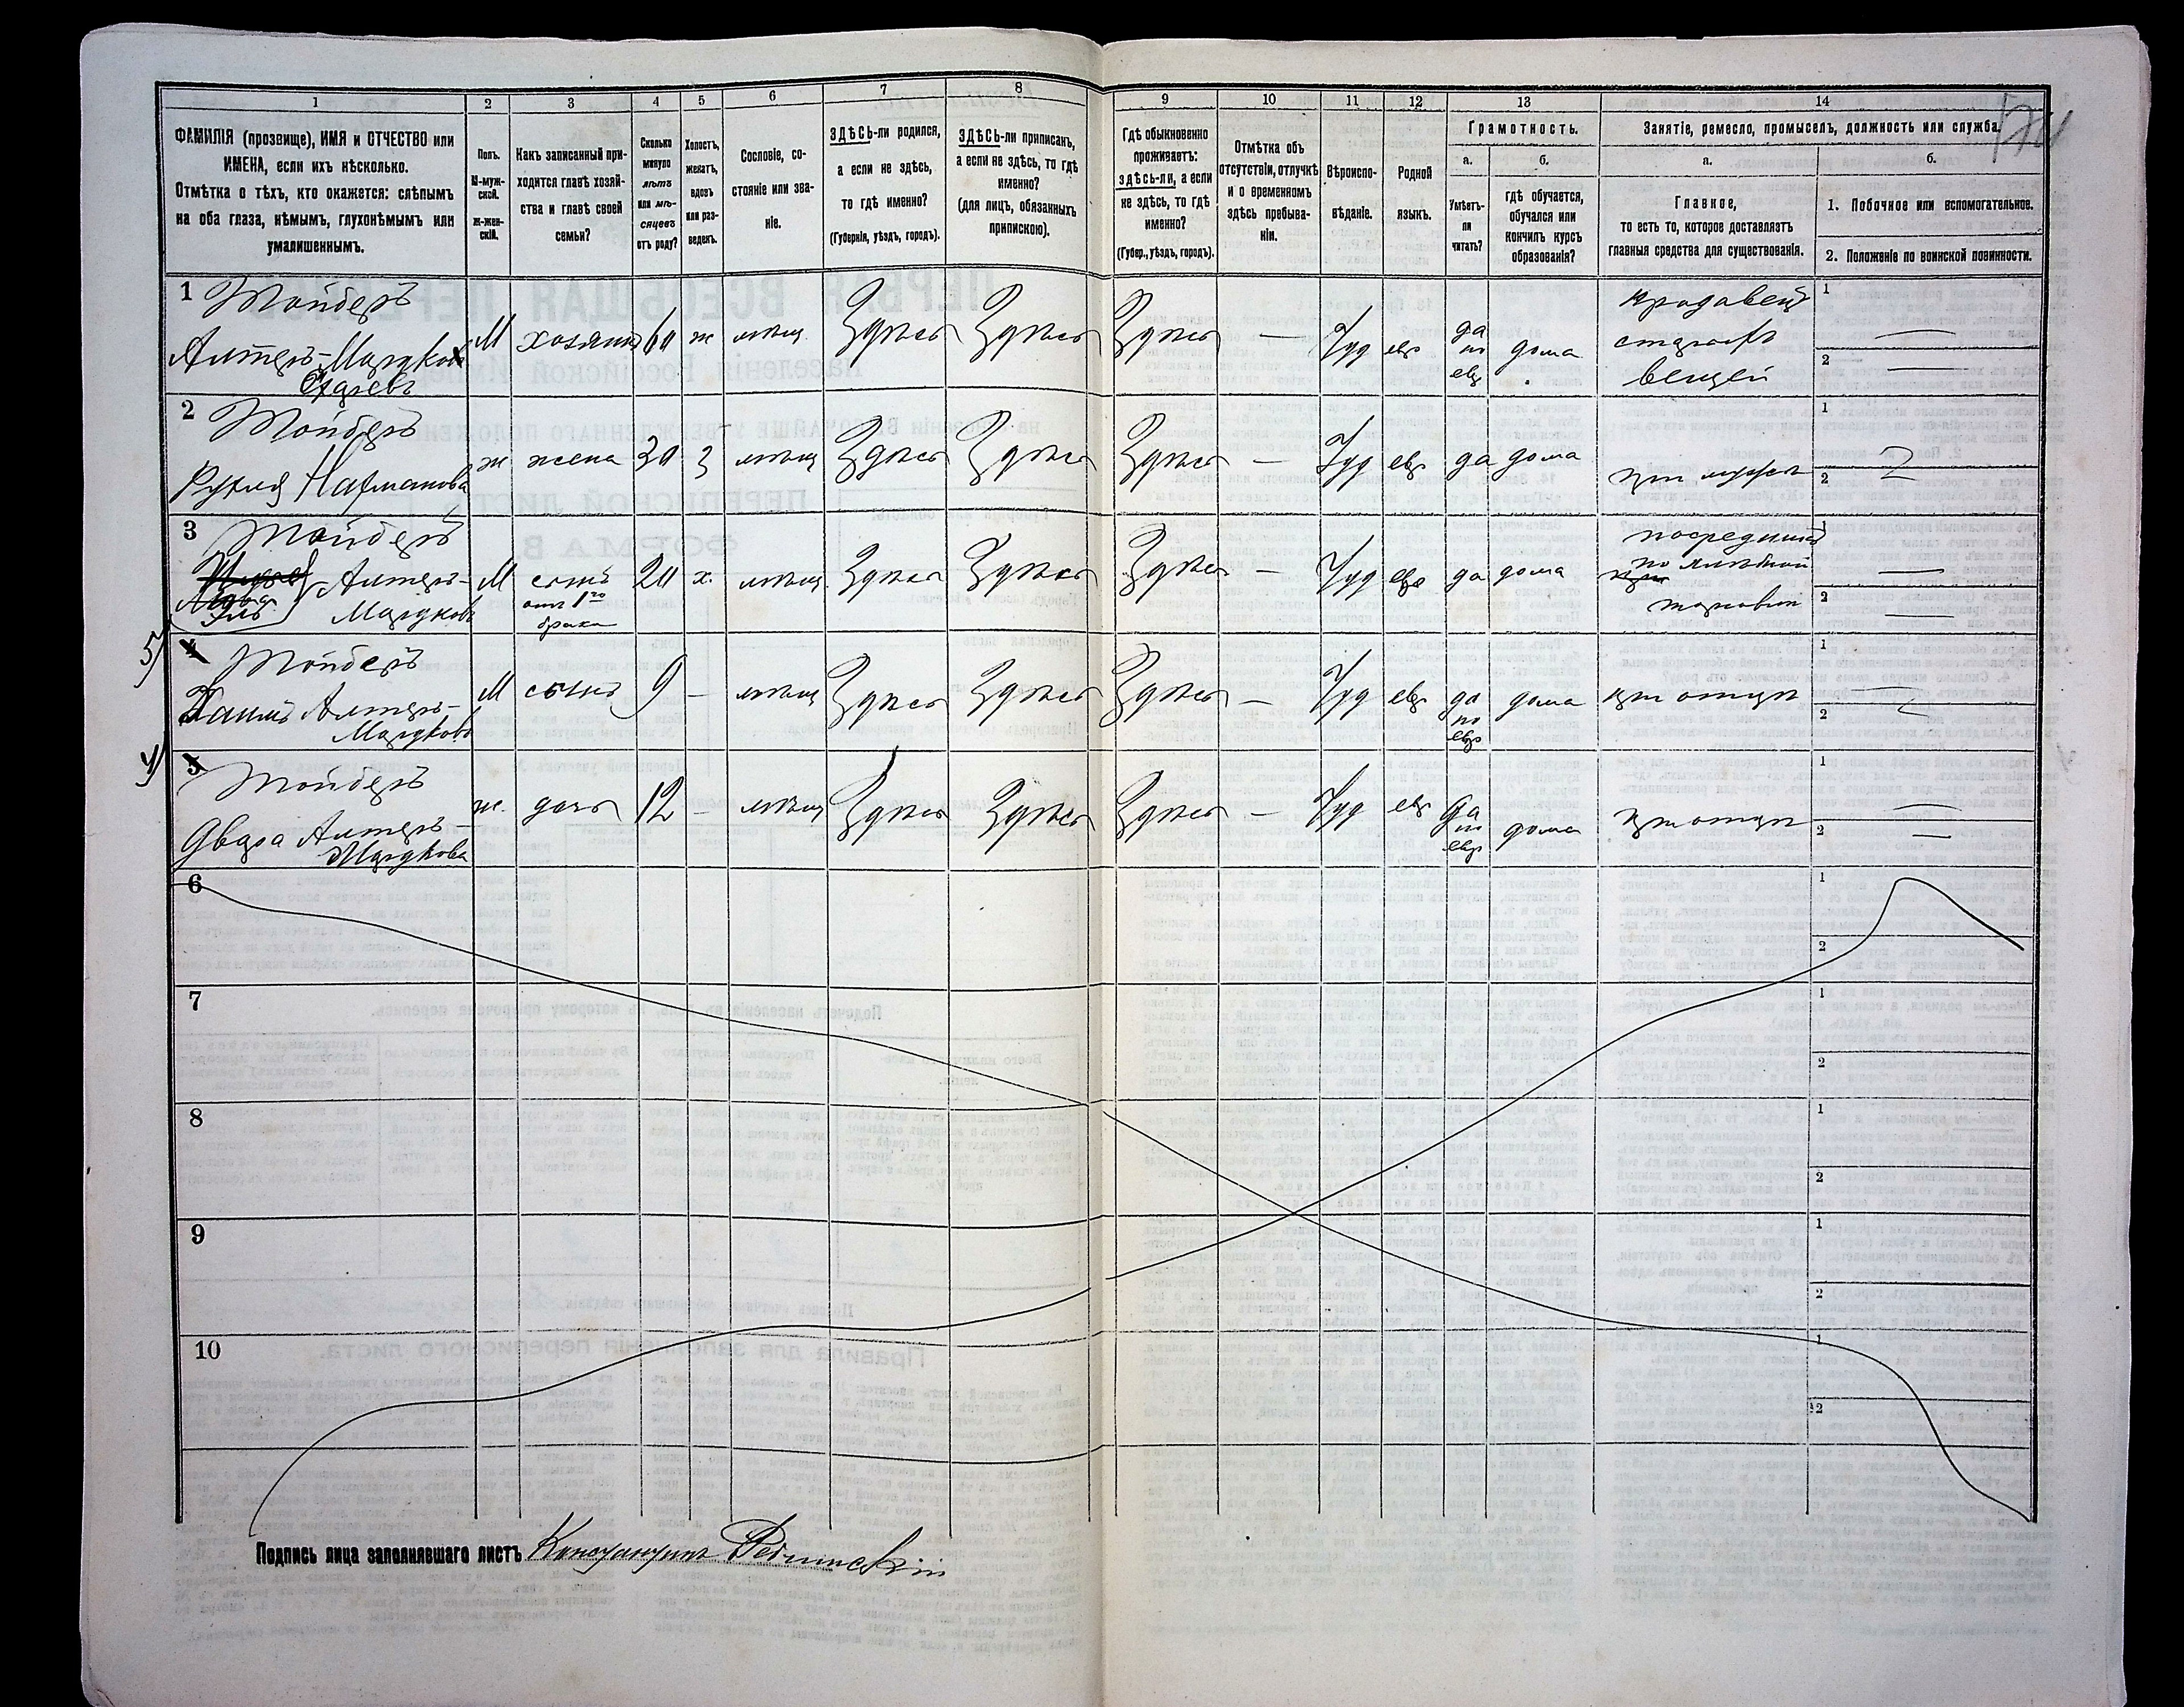 1 2 3 4 5 6 7 8 9 10 11 12 13 14
ФАМИЛІЯ (прозвище), ИМЯ и ОТЧЕСТВО или
ИМЕНА, если ихъ нѣсколько.
Отмѣтка о тѣхъ, кто окажется: слѣпымъ
на оба глаза, нѣмымъ, глухонѣмымъ или
умалишеннымъ.
Полъ.
М-муж-
ской.
Ж-жен-
скій.
Какъ записанный при-
ходится главѣ хозяй-
ства и главѣ своей
семьи?
Сколько
минуло
лѣтъ
или мѣ-
сяцевъ
отъ роду?
Холостъ,
женатъ,
вдовъ
или раз-
веденъ.
Сословіе, со-
стояніе или зва-
ніе.
ЗДѢСЬ-ли родился,
а если не здѣсь,
то гдѣ именно?
(Губернія, уѣздъ, городъ).
ЗДѢСЬ-ли приписанъ,
а если не здѣсь, то гдѣ
именно?
(для лицъ, обязанныхъ
припискою).
Гдѣ обыкновенно
проживаетъ:
здѣсь-ли, а если
не здѣсь, то гдѣ
именно?
(Губер., уѣздъ, городъ).
Отмѣтка объ
отсутствіи, отлучкѣ
и о временномъ
здѣсь пребыва-
ніи.
Вѣроиспо-
вѣданіе.
Родной
языкъ.
Грамотность.
а.
Умѣетъ-
ли
читать?
б.
гдѣ обучается,
обучался или
кончилъ курсъ
образованія?
Занятіе, ремесло, промыселъ, должность или служба.
а.
Главное,
то есть то, которое доставляетъ
главныя средства для существованія.
б.
1. Побочное или вспомогательное.
2. Положеніе по воинской повинности.
1 Тойберъ
Алтеръ-Мардковъ
М хозяинъ 60 ж мѣщ Здѣсь Здѣсь Здѣсь — Іуд евр да по евр дома
продавецъ
старыхъ
вещей
1
2
2 Тойберъ
Рухля Нахманова
ж жена 30 з мѣщ Здѣсь Здѣсь Здѣсь — Іуд евр да дома при мужѣ
1
2
3 Тойберъ
Алтеръ-
Мардковъ
М сынъ 20 х. мѣщ Здѣсь Здѣсь Здѣсь — Іуд евр да дома
отъ 1го
брака
посредникъ
по хлѣбной
торговли
1
2
5) 4 Тойберъ
Хаимъ Алтеръ-
Мардковъ
М сынъ 9 — мѣщ Здѣсь Здѣсь Здѣсь — Іуд евр да по евр дома при отцѣ
1
2
4) 5 Тойберъ
Двора Алтеръ-
Мардкова
ж. дочь 12 — мѣщ Здѣсь Здѣсь Здѣсь — Іуд евр да по евр дома при отцѣ
1
2
6
1
2
7
1
2
8
1
2
9
1
2
10
1
2
Подпись лица заполнявшаго листъ